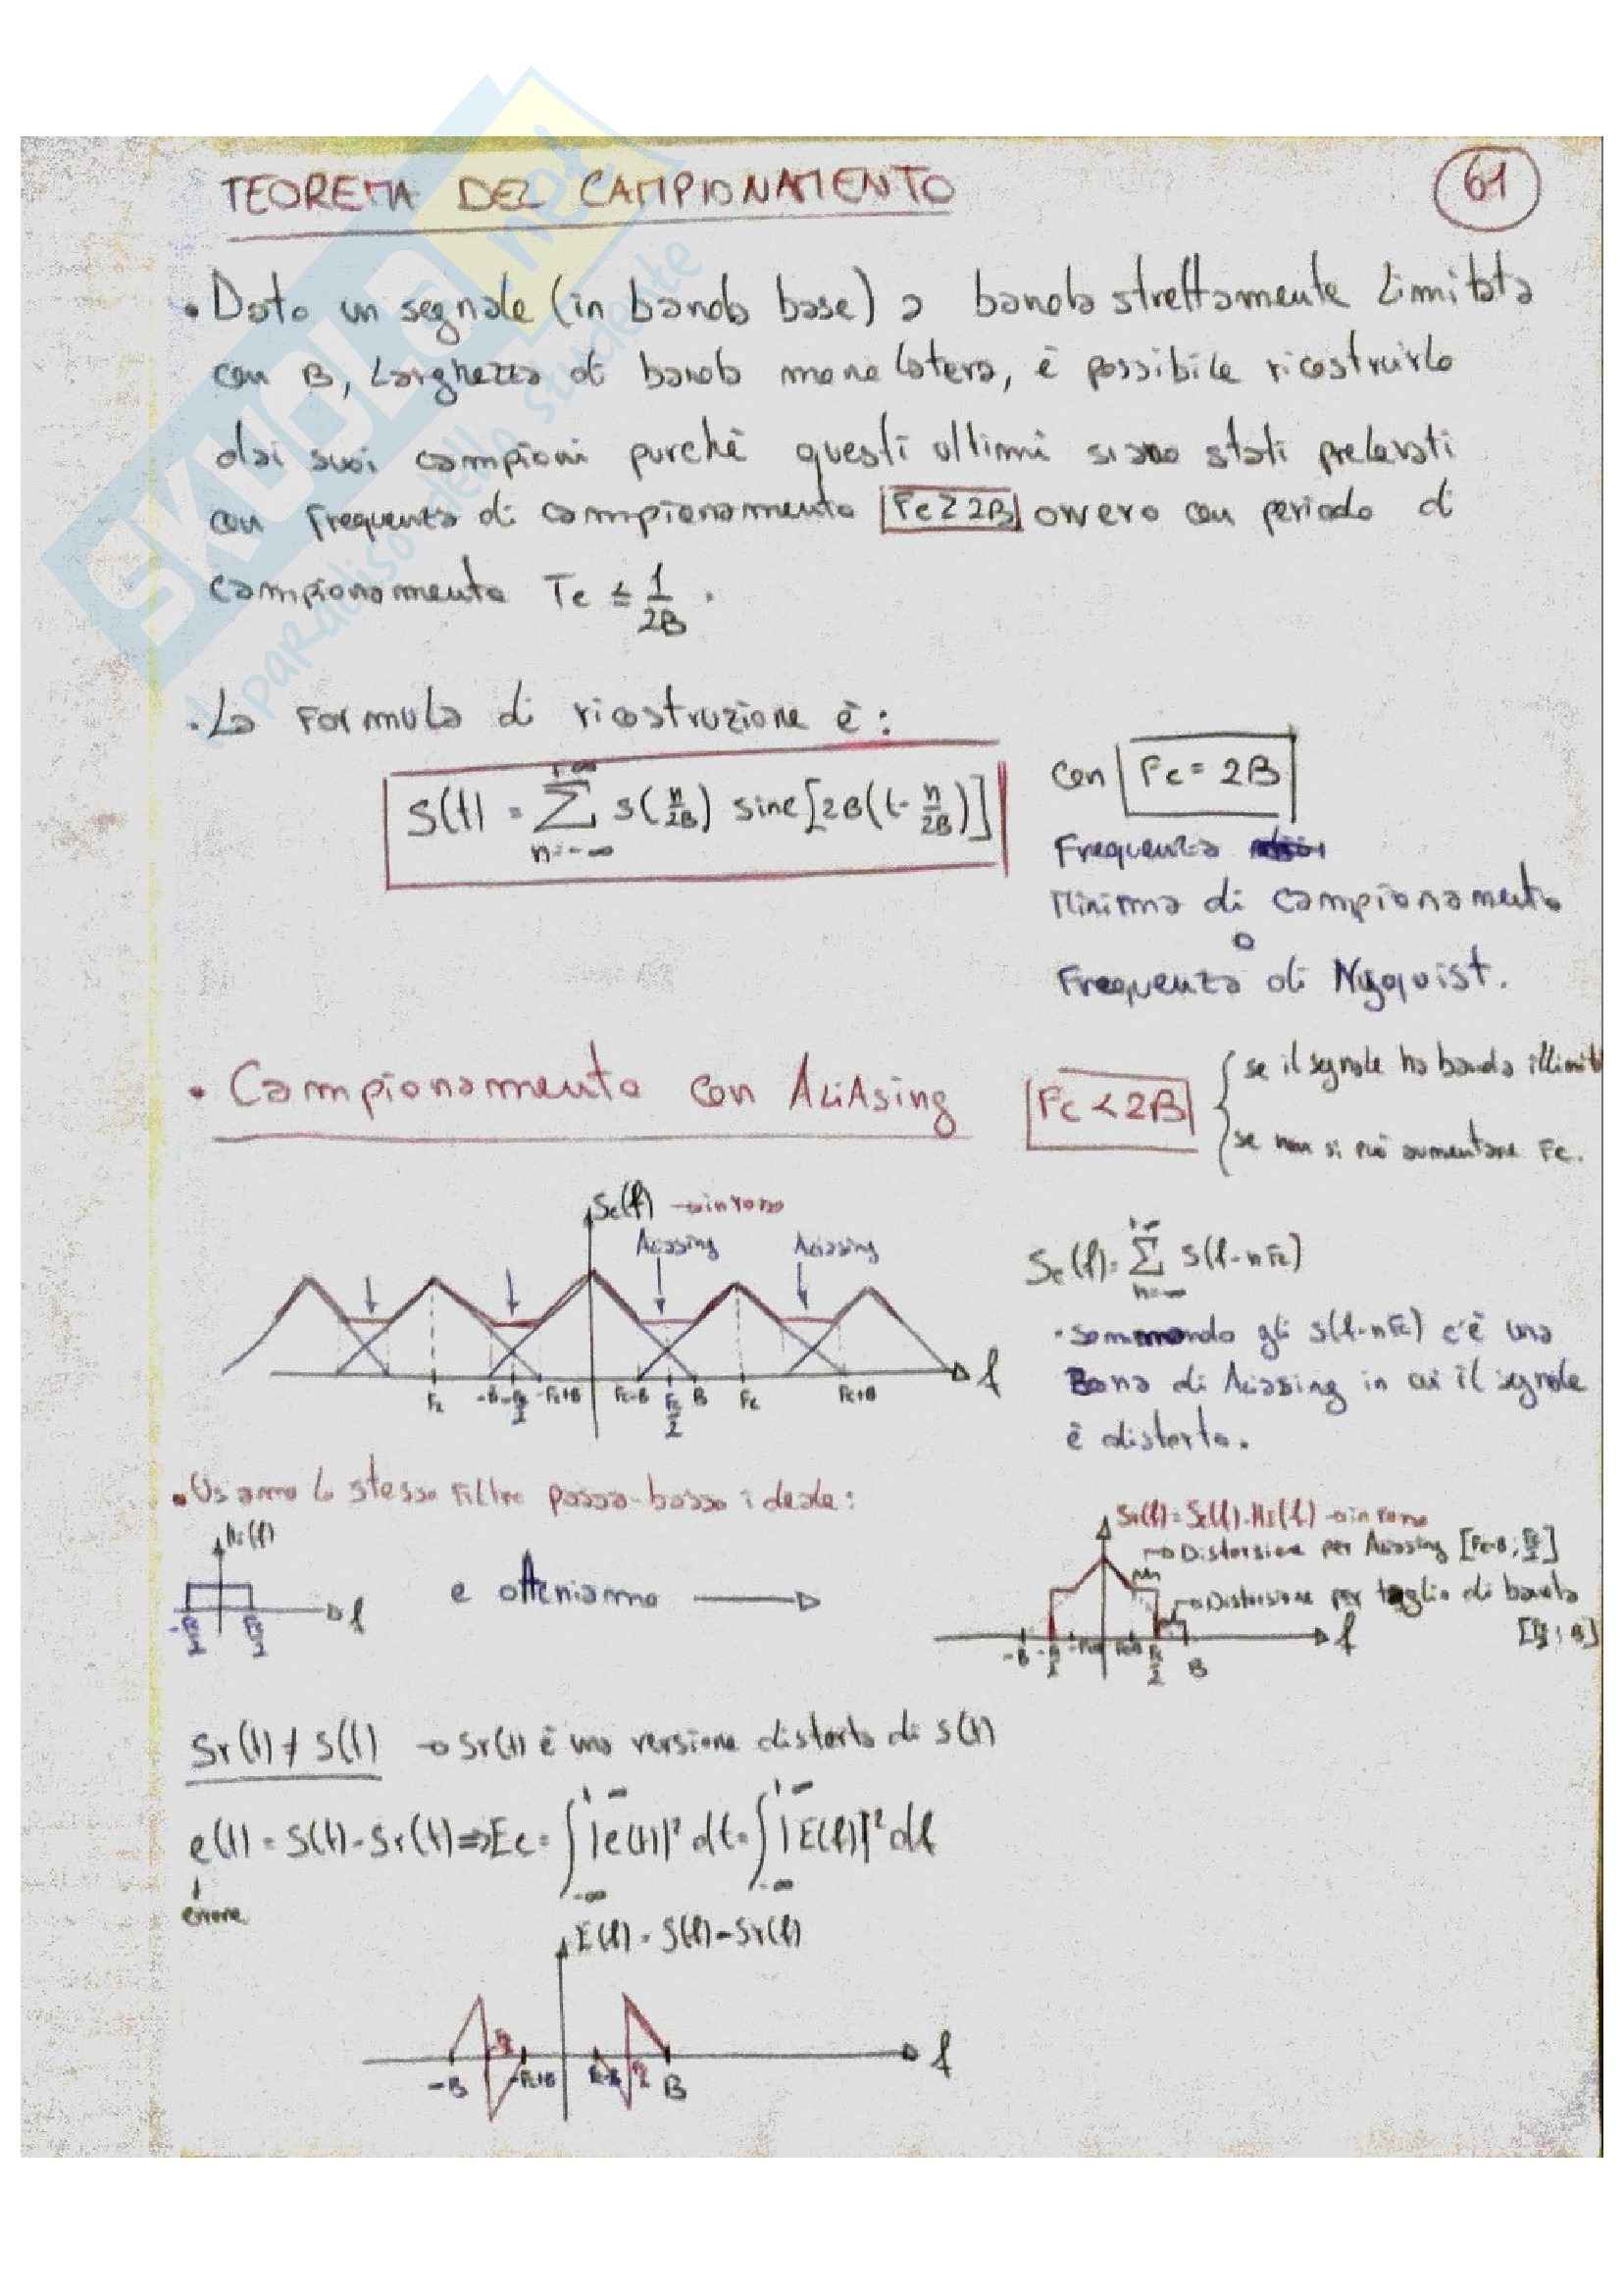 TEOREMA DEL CAMPIONAMENTO
61
• Dato un segnale (in banda base) a banda strettamente limitata
con B, larghezza di banda monolatera, è possibile ricostruirlo
dai suoi campioni purchè questi ultimi siano stati prelevati
con frequenza di campionamento Fc ≥ 2B ovvero con periodo di
campionamento Tc ≤ 1/2B .
• La formula di ricostruzione è:
s(t) = Σ_{n=-∞}^{+∞} s(n/2B) sinc[2B(t - n/2B)]
con Fc = 2B
Frequenza
Minima di campionamento
o
Frequenza di Nyquist.
• Campionamento con Aliasing
Fc < 2B
se il segnale ha banda illimit
se non si può aumentare Fc.
Sc(f) → in rosso
Aliasing Aliasing
Fc -B -Fc/2 -Fc+B Fc-B Fc/2 B Fc Fc+B f
Sc(f) = Σ_{n=-∞}^{+∞} S(f-nFc)
• sommando gli S(f-nFc) c'è una
Banda di Aliasing in cui il segnale
è distorto.
• Usiamo lo stesso filtro passa-basso ideale:
Hr(f)
-Fc/2 Fc/2 f
e otteniamo →
Sr(f) = Sc(f)·Hr(f) → in rosso
→ Distorsione per Aliasing [Fc-B; Fc/2]
→ Distorsione per taglio di banda
[Fc/2; B]
-B -Fc/2 Fc/2 B f
Sr(t) ≠ S(t) → Sr(t) è una versione distorta di s(t)
e(t) = S(t) - Sr(t) ⇒ Ee = ∫_{-∞}^{+∞} |e(t)|² dt = ∫_{-∞}^{+∞} |E(f)|² df
↓
errore
E(f) = S(f) - Sr(f)
-B -Fc+B Fc-B B f
SKUOLA.net
il paradiso dello studente